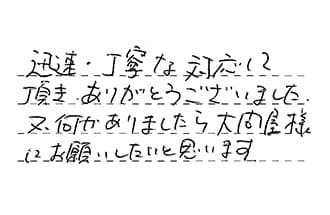 迅速・丁寧な対応に
頂き ありがとうございました.
又、何かありましたら大問屋様
にお願いしたいと思います